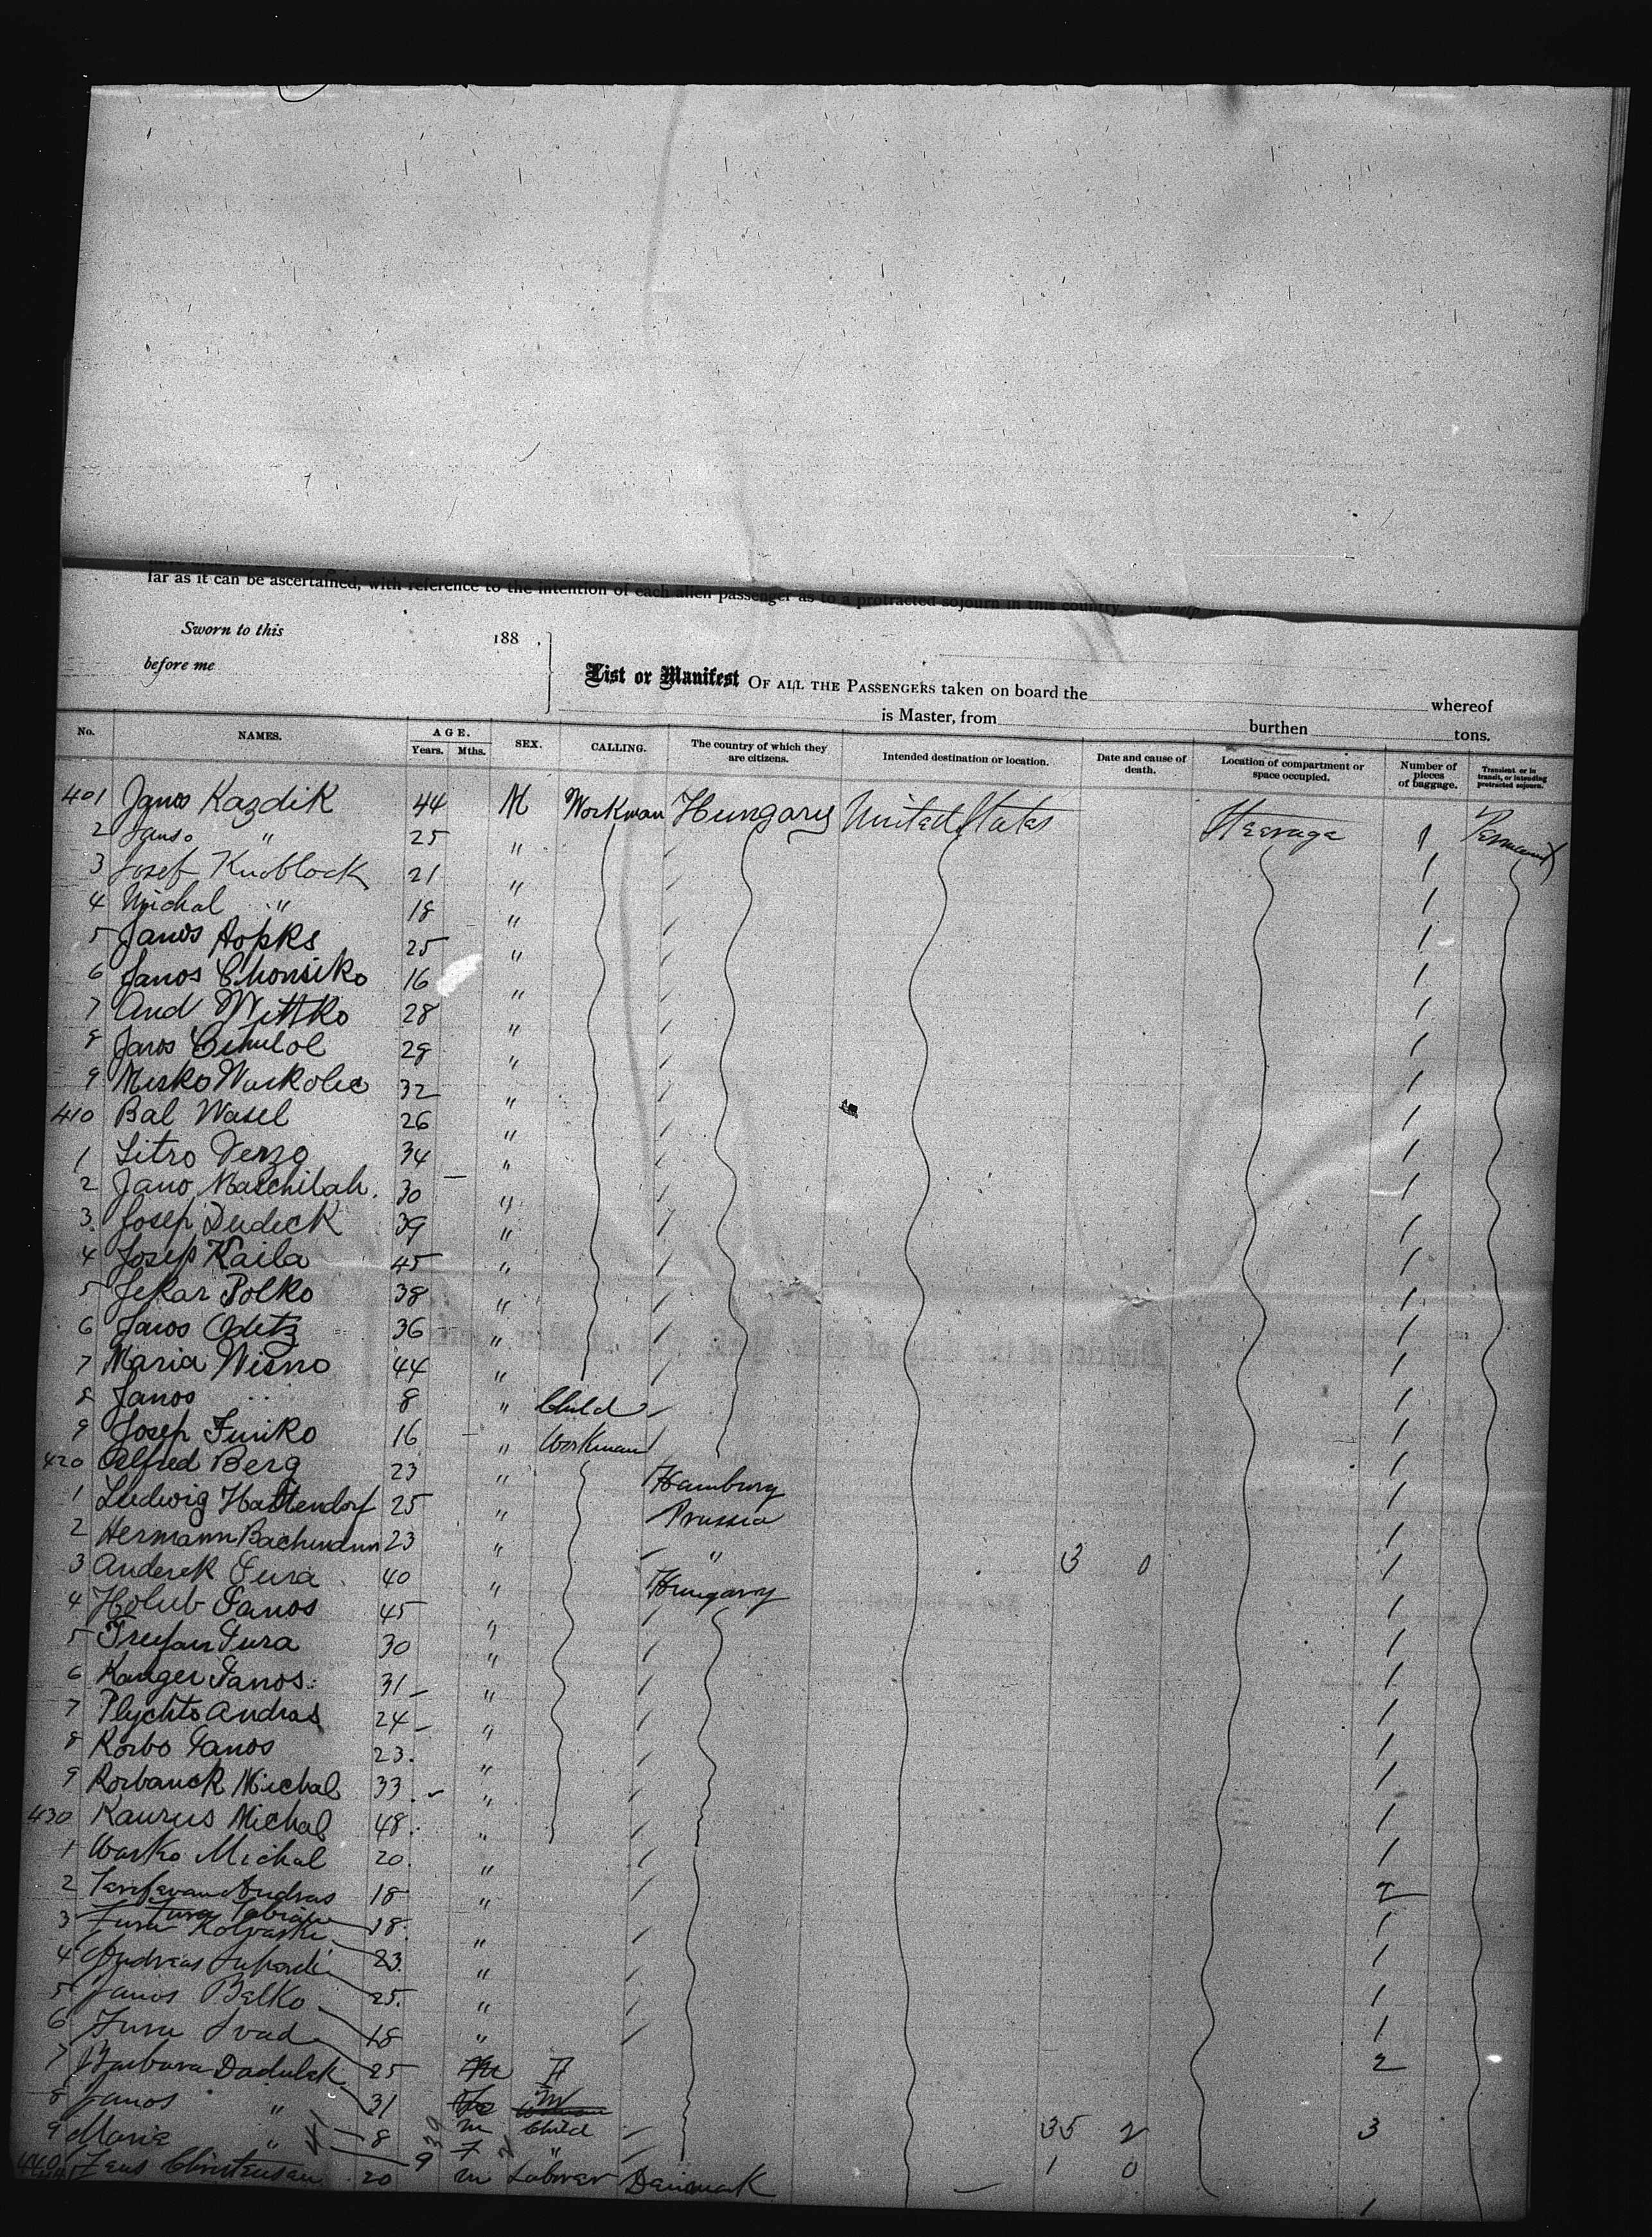 far as it can be ascertained, with reference to the intention of each alien passenger as to a protracted sojourn in this country
Sworn to this 188 .
before me
List or Manifest OF ALL THE PASSENGERS taken on board the whereof
is Master, from burthen tons.
No. NAMES. AGE. Years. Mths. SEX. CALLING. The country of which they are citizens. Intended destination or location. Date and cause of death. Location of compartment or space occupied. Number of pieces of baggage. Transient or in transit, or intending protracted sojourn.
401 Janos Kazdik 44 M Workman Hungary United States Steerage 1
2 " 25 " 1
3 Josef Knoblock 21 " 1
4 Michal " 18 " 1
5 Janos Hopks 25 " 1
6 Janos Chonsiko 16 " 1
7 And Mittko 28 " 1
8 Janos 28 " 1
9 Misko 32 " 1
410 Bal Wasel 26 " 1
1 Litro 34 " 1
2 Jano Maschilah. 30 " 1
3. Josep Dudeck 39 " 1
4 Josep Kaila 45 " 1
5 Jekar Polko 38 " 1
6 Janos 36 " 1
7 Maria Wisno 44 " 1
8 Janos 8 " Child 1
9 Josep Funko 16 " Workman 1
420 Alfred Berg 23 " Hamburg 1
1 Ludwig Hattendorf 25 " Prussia 1
2 Hermann Bachmann 23 " " 1
3 Anderek Jura 40 " Hungarry 3 0 1
4 Holub Janos 45 " 1
5 Jura 30 " 1
6 Kanger Janos 31 " 1
7 Plychto Andras 24 " 1
8 Korbo Janos 23. " 1
9 Korbanek Michal 33 " 1
430 Kaurus Michal 48 " 1
1 Wasko Michal 20 " 1
2 Andras 18 " 2
3 Jura 18 " 1
4 Andreas 23. " 1
5 Janos Balko 25. " 1
6 Jura 18 " 1
7 Barbara Dadulak 25 2
8 Janos " 31
9 Maria " 8 m Child 35 2 3
440 Jens Christensen 9 f " 1 0
20 m Labourer Danmark 1